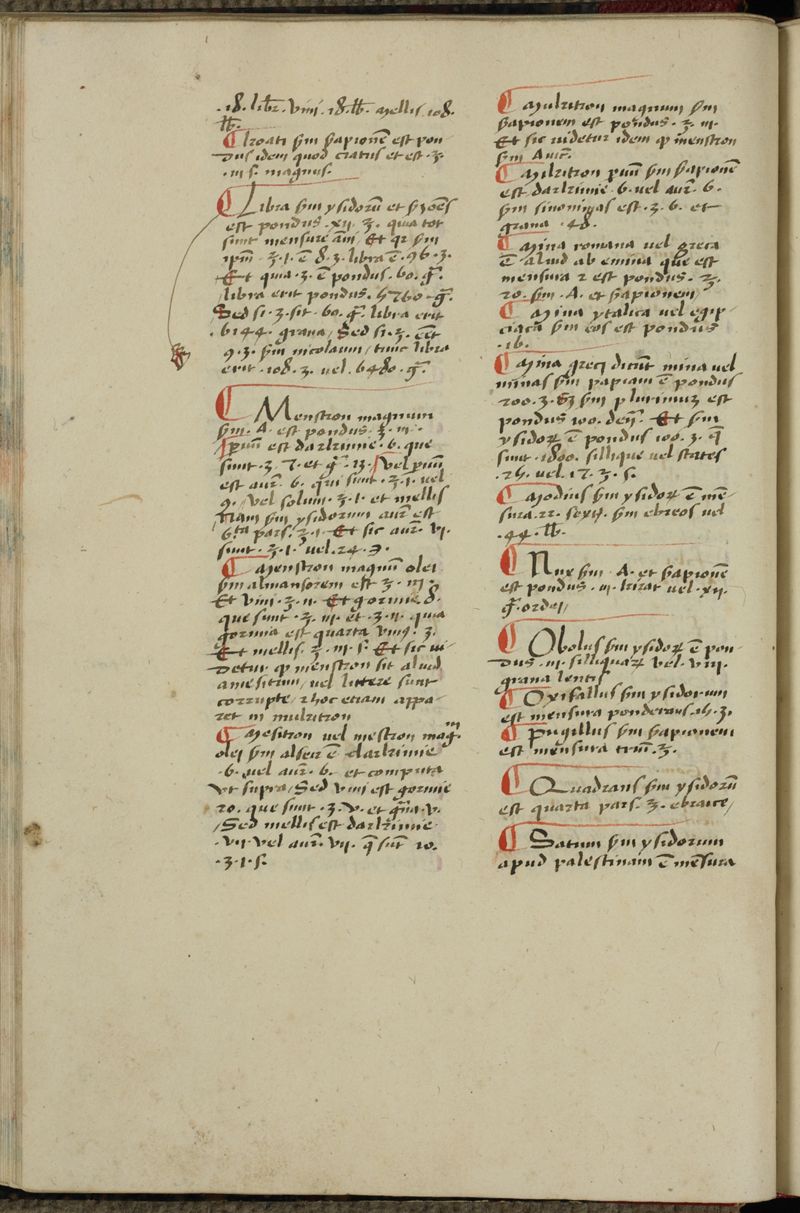 .18. libr. viii. 18. ℔. mellis 108.
℔.
¶ kroati sm sapionē est pon
dus idem quod ciatus et est .ʒ.
.iii s. magnus.
¶ Libra sm ysidorū et ones
est pondus .xii. ℥. quia tot
sunt mensure et qr sm
ipm ℥.1. ē 8. ʒ. libra ē .96. ʒ.
Et quia .ʒ. ē pondus .60. gͣ.
libra erit pondus. 5760 gͣ.
Sed si .ʒ. sit .60. gͣ. libra erit
.6144. grana / Sed si .℥. ēet
9. ʒ. sm nicolaum / tunc libra
erit .108. ʒ. uel .6480. gͣ.
¶ Menstron magnum
sm .A. est pondus .℥. iii.
pum est darkimie .6. que
sunt .ʒ. 7. et gͣ. 13. / Vel pum
est aur̄. 6. qui sunt .℥.1. uel
9. / Vel solum .℥.1. et mellis
/ Nam sm ysidorum aur̄ est
6ta pars .℥.1. Et sic aur̄. vi.
sunt .℥.1. uel .24. ℈.
¶ Menstron magnū olei
sm almansorem est ℥. iii
Et vini .℥. ii. Et gorme 8.
que sunt .℥. iii. et .ʒ. ii. quia
gorma est quarta ℥.
Et mellis .℥. iii s. Et sic ui
detur. q menstron sit aliud
a mesitrim / uel littere sunt
corrupte / 2 hoc etiam appa
ret in mulitron
¶ Mesitron uel mestron mag. um
olei sm alsar ē darkimie
.6. uel aur̄. 6. et computa
Vt supra / Sed vini est gorme
20. que sunt .ʒ. v. et gͣna .v.
/ Sed mellis est darkimie
.vii vel aur̄. vii. q̄ sūt 10.
.ʒ.1. s.
¶ Mulitron magnum sm
sapionem est pondus .℥. iii.
Et sic uidetur idem q menstron
sm Auic̄.
¶ Militron pum sm sapionē
est darkimie .6. uel aur̄. 6.
sm sinonimas est .ʒ. 6. et
grana .48.
¶ Mina romana uel greca
ē aliud ab emina que est
mensura 2 est pondus .℥.
20. sm .A. et sapionem
¶ Mina ytalica uel egip
ciaca sm eos est pondus
.16.
¶ Mina greci dicūt mina uel
minas sm papiam ē pondus
200. ʒ. Sʒ sm plurimuʒ est
pondus 100. den̄. Et sm
ysidoꝝ ē pondus 100. ʒ. q̄
sunt .1800. silique uel states
.25. uel .12. ℥. s.
¶ Modius sm ysidoꝝ ē mē
sura .22. sextꝭ. sm ebreos uel
.44. ℔.
¶ Nux sm .A. et sapionē
est pondus .iii. kirat uel .xii.
gͣ. ordei /
¶ Obolus sm ysidoꝝ ē pon
dus .iii. siliquaꝝ vel. viii.
grana lentis
¶ Oxifallus sm ysidorum
est mensura ponderans .15. ʒ.
¶ Pugillus sm sapionem
est mensura trm̄. ℥.
¶ Quadrans sm ysidorū
est quarta pars .℥. ebraice /
¶ Satum sm ysidorum
apud palestinam ē mēsura